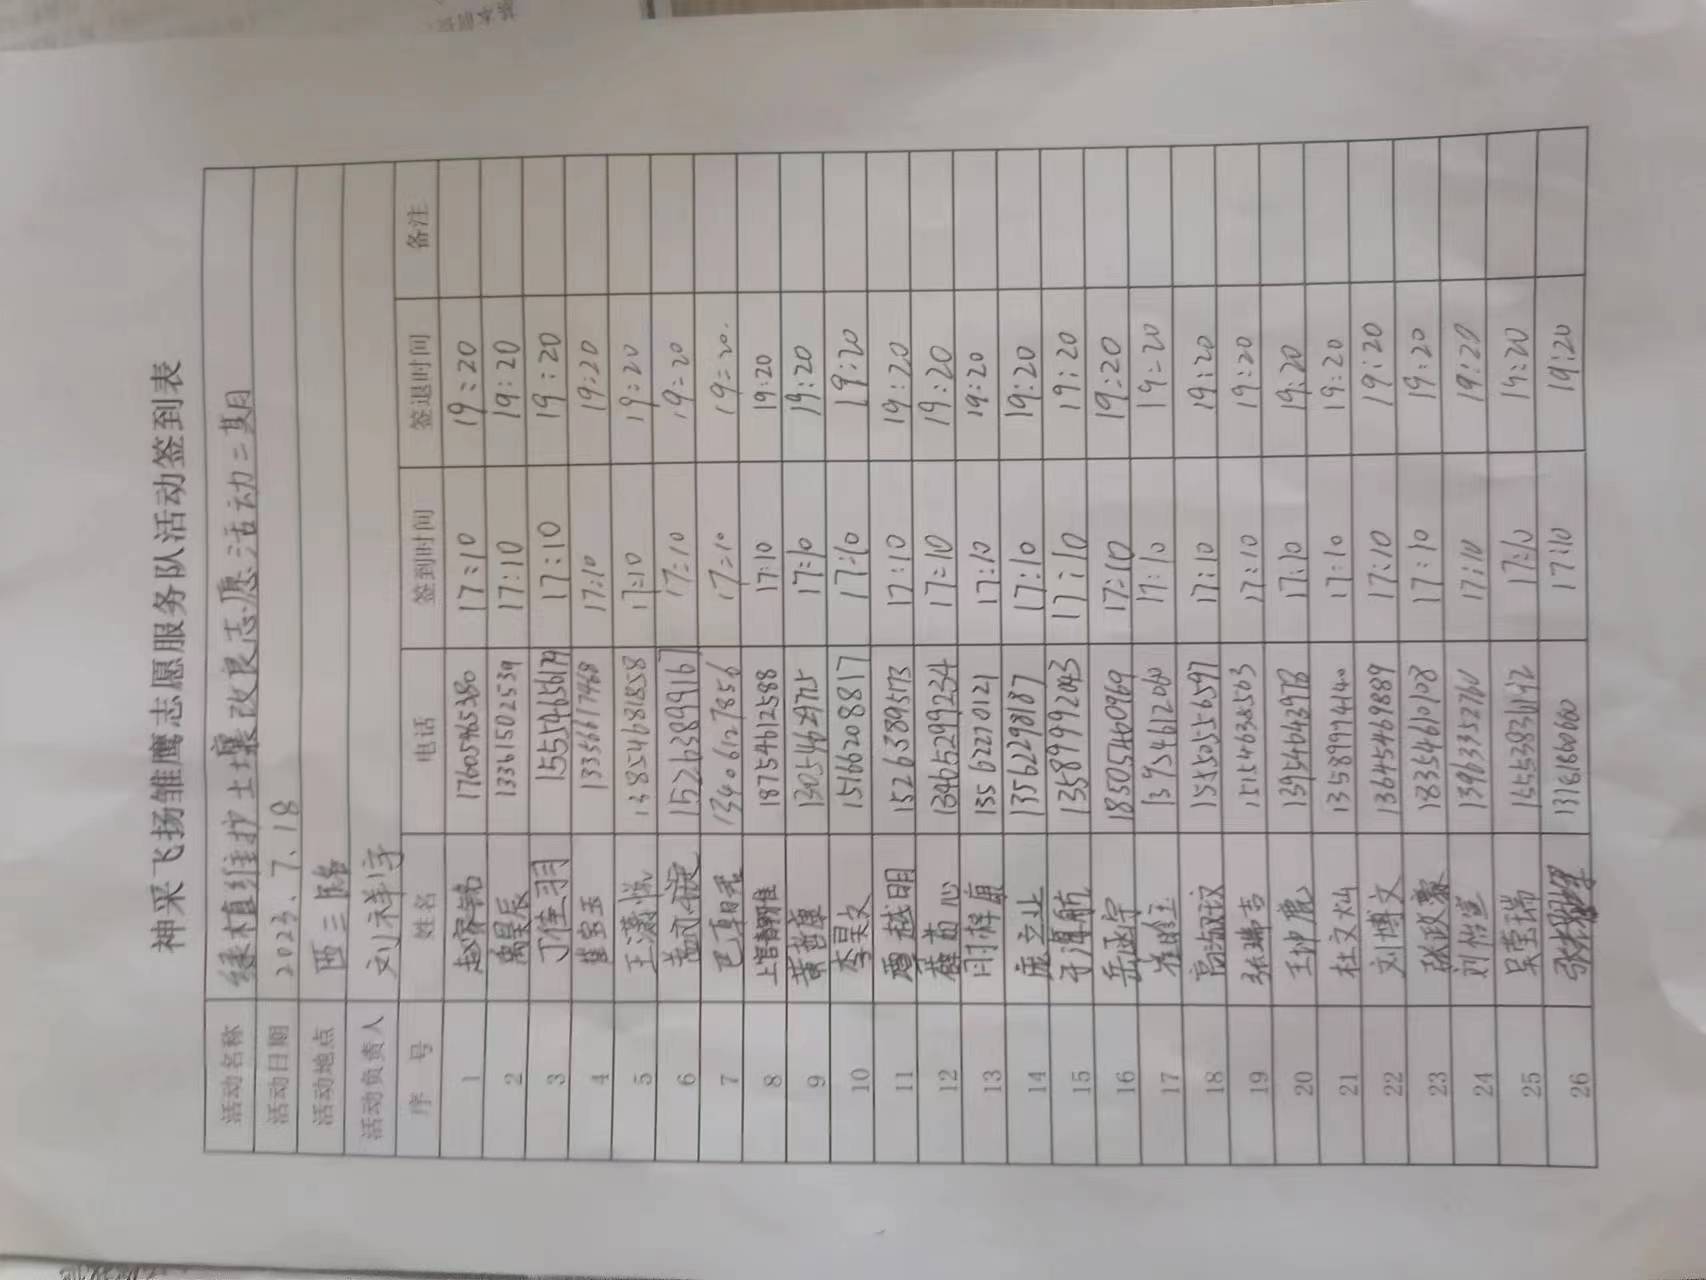 神采飞扬雏鹰志愿服务队活动签到表
活动名称 绿植维护土壤改良志愿活动二期
活动日期 2023.7.18
活动地点 西三路
活动负责人 刘祥宇
序号 姓名 电话 签到时间 签退时间 备注
1 赵容锦 17605465380 17:10 19:20
2 万昊辰 13361502539 17:10 19:20
3 丁佳羽 17:10 19:20
4 董宝玉 13356617468 17:10 19:20
5 王潇悦 13854681858 17:10 19:20
6 15263899167 17:10 19:20
7 13406127856 17:10 19:20
8 上官 18754612588 17:10 19:20
9 黄哲康 13054629775 17:10 19:20
10 李昊文 15166208817 17:10 19:20
11 越明 15263895173 17:10 19:20
12 薛茜心 13465299234 17:10 19:20
13 闫梓康 13562270121 17:10 19:20
14 庞立业 13562298187 17:10 19:20
15 于海航 13589992043 17:10 19:20
16 岳涵宇 18505460969 17:10 19:20
17 13954612060 17:10 19:20
18 高溦玟 15550556597 17:10 19:20
19 张瑞吉 15154638503 17:10 19:20
20 王坤鹿 13954043978 17:10 19:20
21 杜文灿 13589974140 17:10 19:20
22 刘博文 13645469889 17:10 19:20
23 张政 18354610108 17:10 19:20
24 刘怡萱 13963352760 17:10 19:20
25 吴莹瑞 17:10 19:20
26 13161860660 17:10 19:20